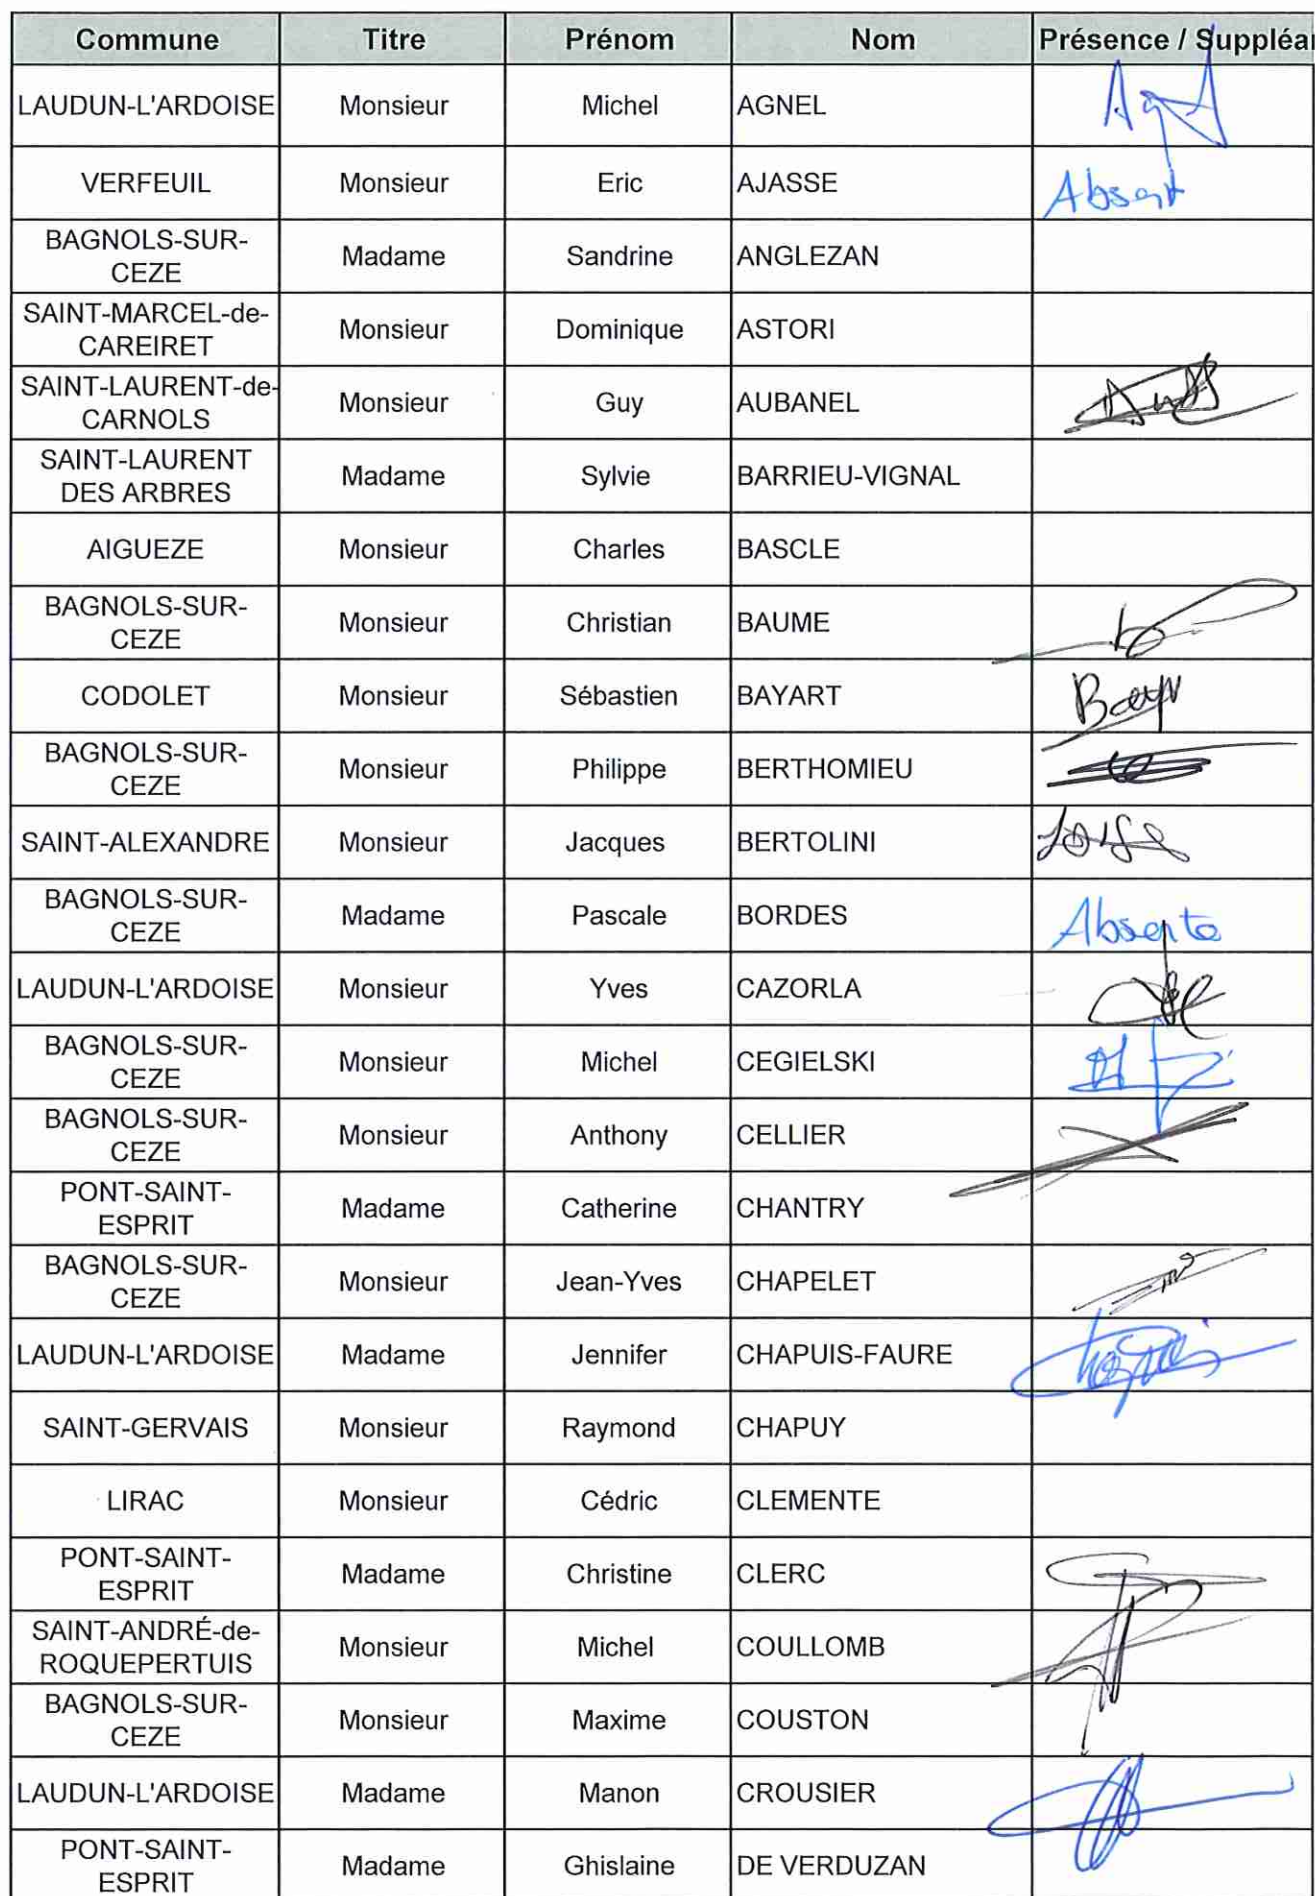 Commune Titre Prénom Nom Présence / Suppléa
LAUDUN-L'ARDOISE Monsieur Michel AGNEL
VERFEUIL Monsieur Eric AJASSE Absent
BAGNOLS-SUR-
CEZE Madame Sandrine ANGLEZAN
SAINT-MARCEL-de-
CAREIRET Monsieur Dominique ASTORI
SAINT-LAURENT-de-
CARNOLS Monsieur Guy AUBANEL
SAINT-LAURENT
DES ARBRES Madame Sylvie BARRIEU-VIGNAL
AIGUEZE Monsieur Charles BASCLE
BAGNOLS-SUR-
CEZE Monsieur Christian BAUME
CODOLET Monsieur Sébastien BAYART
BAGNOLS-SUR-
CEZE Monsieur Philippe BERTHOMIEU
SAINT-ALEXANDRE Monsieur Jacques BERTOLINI
BAGNOLS-SUR-
CEZE Madame Pascale BORDES Absente
LAUDUN-L'ARDOISE Monsieur Yves CAZORLA
BAGNOLS-SUR-
CEZE Monsieur Michel CEGIELSKI
BAGNOLS-SUR-
CEZE Monsieur Anthony CELLIER
PONT-SAINT-
ESPRIT Madame Catherine CHANTRY
BAGNOLS-SUR-
CEZE Monsieur Jean-Yves CHAPELET
LAUDUN-L'ARDOISE Madame Jennifer CHAPUIS-FAURE
SAINT-GERVAIS Monsieur Raymond CHAPUY
LIRAC Monsieur Cédric CLEMENTE
PONT-SAINT-
ESPRIT Madame Christine CLERC
SAINT-ANDRÉ-de-
ROQUEPERTUIS Monsieur Michel COULLOMB
BAGNOLS-SUR-
CEZE Monsieur Maxime COUSTON
LAUDUN-L'ARDOISE Madame Manon CROUSIER
PONT-SAINT-
ESPRIT Madame Ghislaine DE VERDUZAN